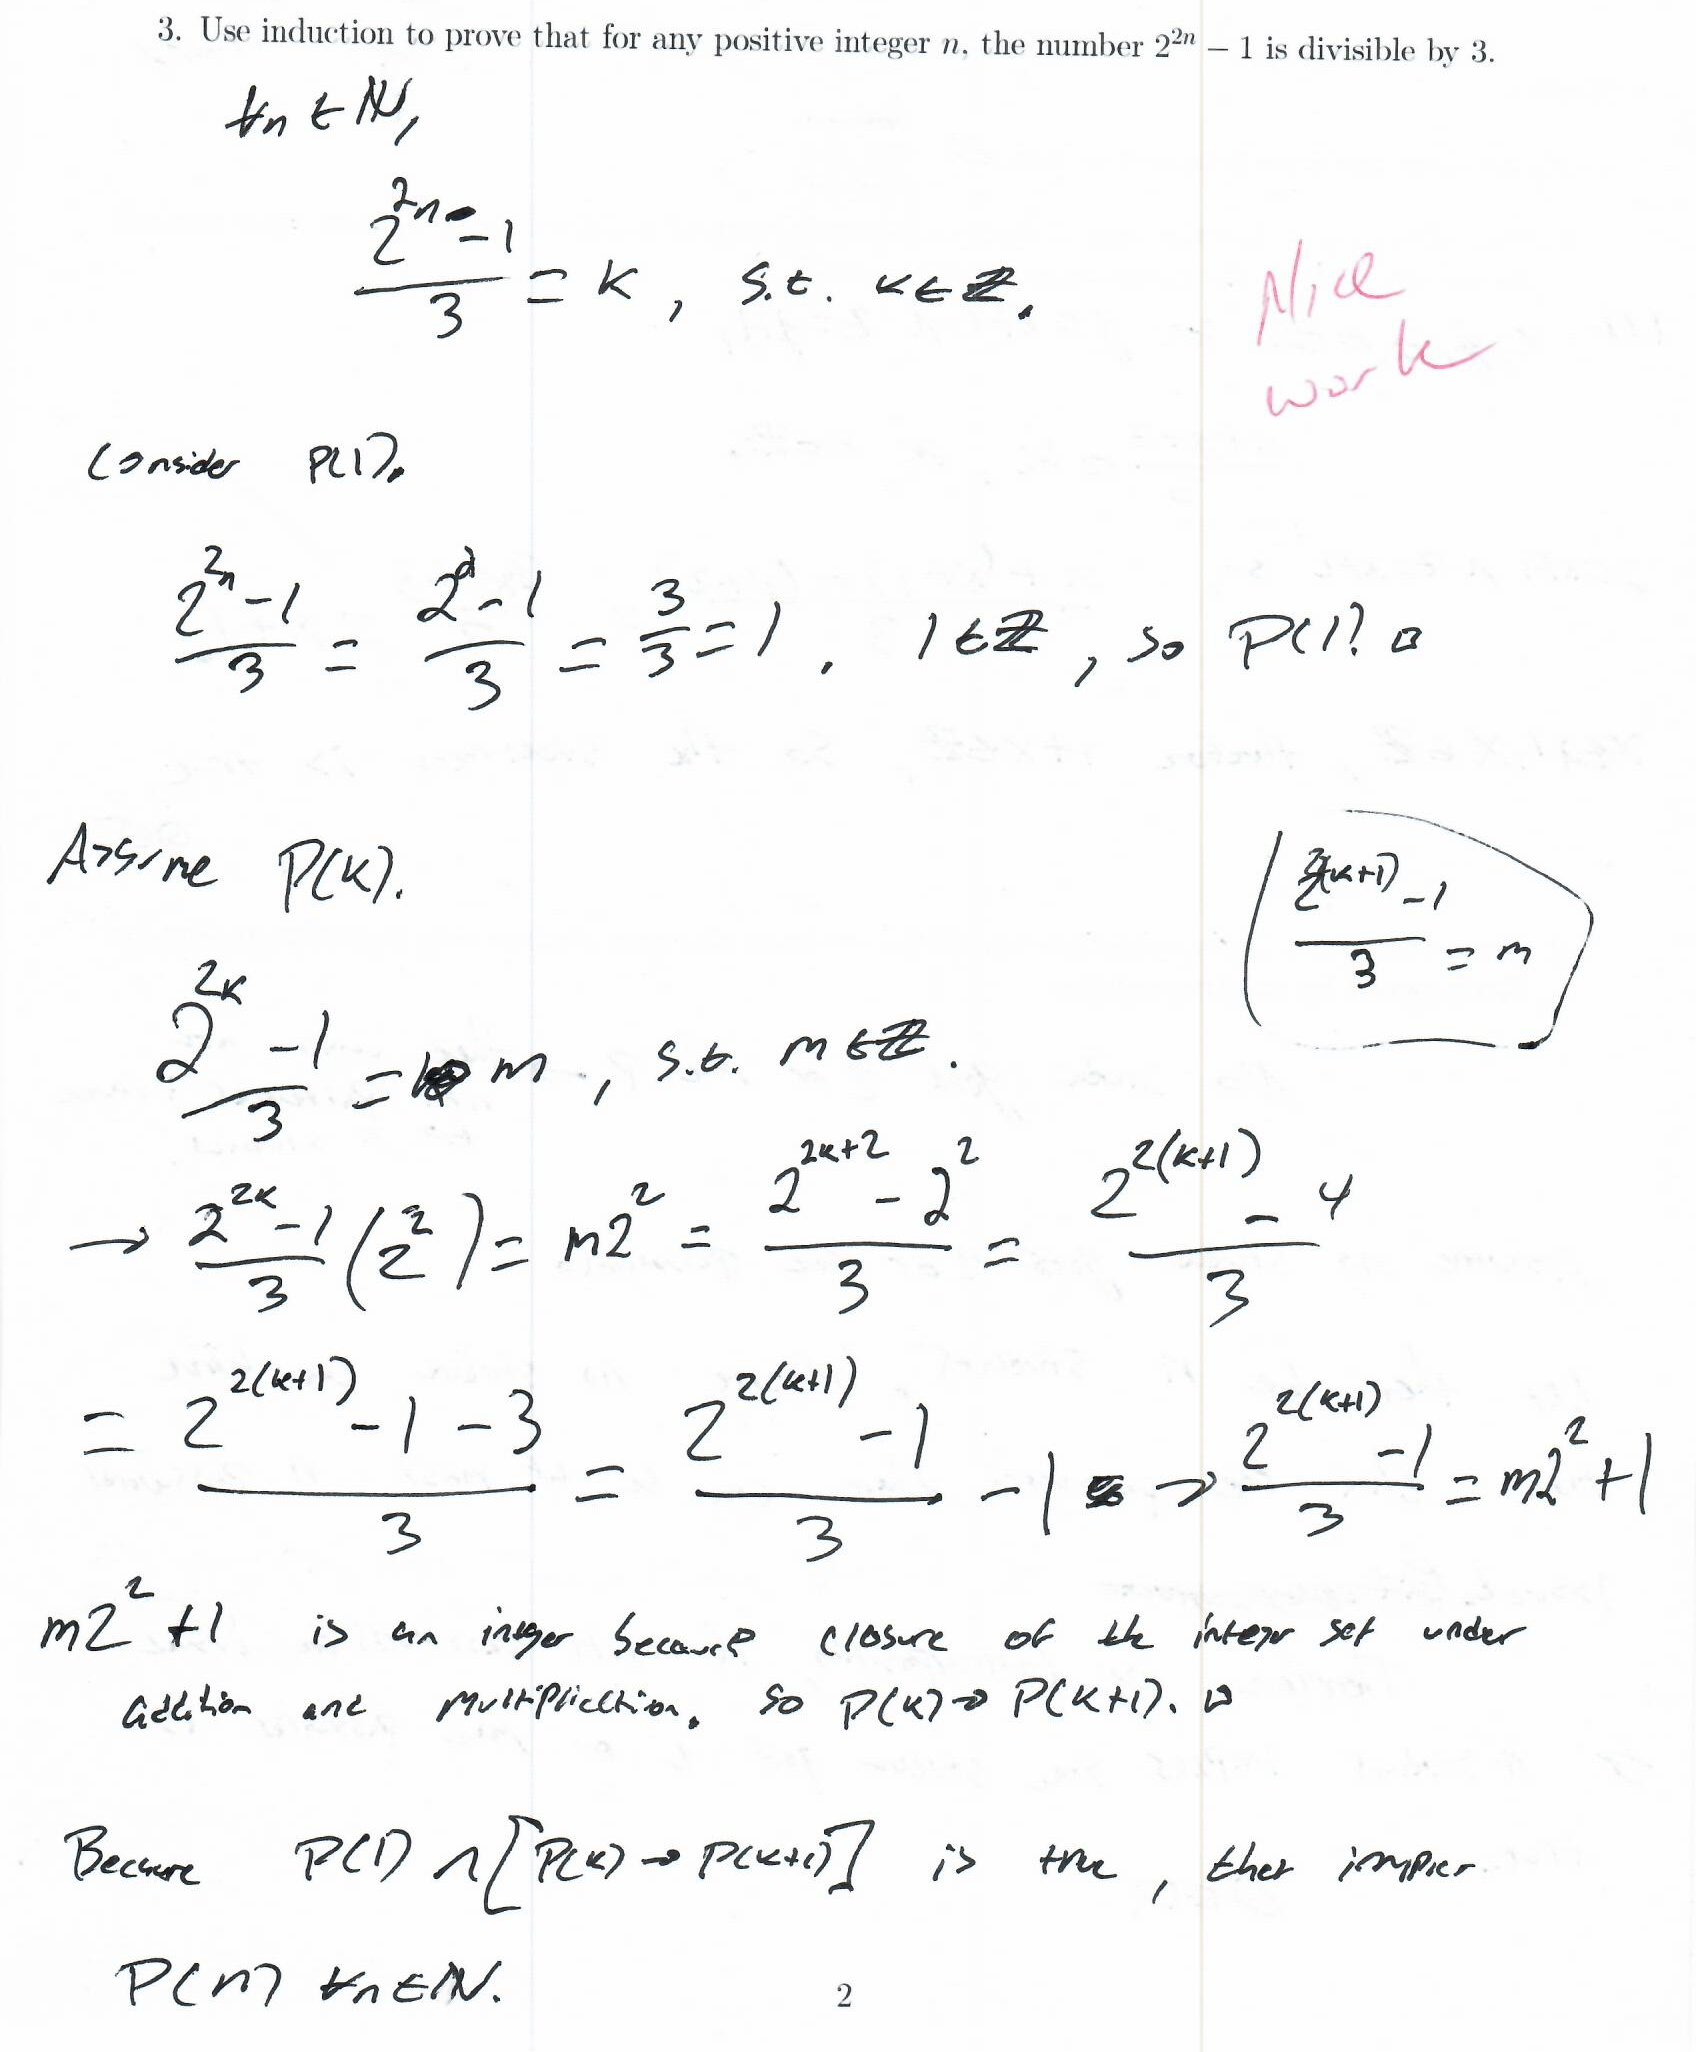 3. Use induction to prove that for any positive integer n, the number 2^{2n} − 1 is divisible by 3.
∀n ∈ ℕ,
(2^{2n} - 1)/3 = k, s.t. k ∈ ℤ.
Nice
work
Consider P(1).
(2^{2n} - 1)/3 = (2^2 - 1)/3 = 3/3 = 1. 1 ∈ ℤ, so P(1)! □
Assume P(k).
(2^{2(k+1)} - 1)/3 = m
(2^{2k} - 1)/3 = m, s.t. m ∈ ℤ.
→ (2^{2k} - 1)/3 (2^2) = m2^2 = (2^{2k+2} - 2^2)/3 = (2^{2(k+1)} - 4)/3
= (2^{2(k+1)} - 1 - 3)/3 = (2^{2(k+1)} - 1)/3 - 1 → (2^{2(k+1)} - 1)/3 = m2^2 + 1
m2^2 + 1 is an integer because closure of the integer set under
addition and multiplication. So P(k) → P(k+1). □
Because P(1) ∧ [P(k) → P(k+1)] is true, that implies
P(n) ∀n ∈ ℕ.
2